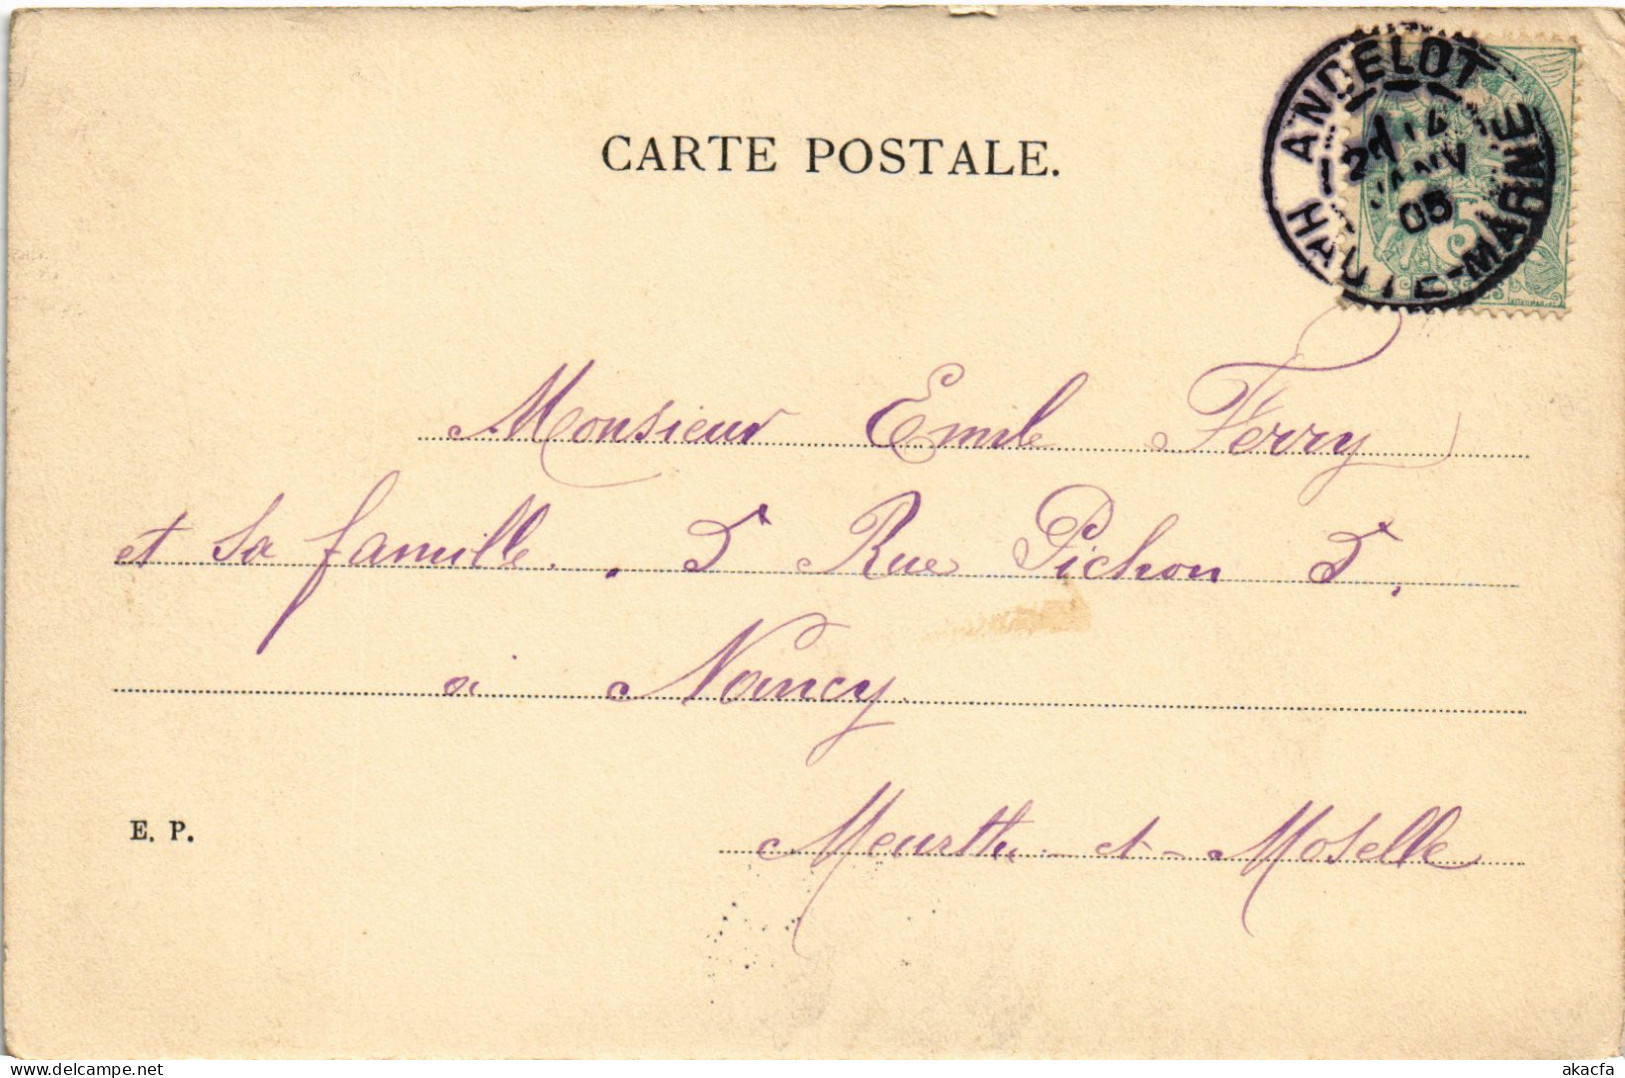 CARTE POSTALE.
ANDELOT
14
JANV
05
HAUTE-MARNE
5
Monsieur Emile Ferry
et sa famille. 5 Rue Pichon 5,
à Nancy.
Meurthe-et-Moselle
E. P.
delcampe.net
akacfa